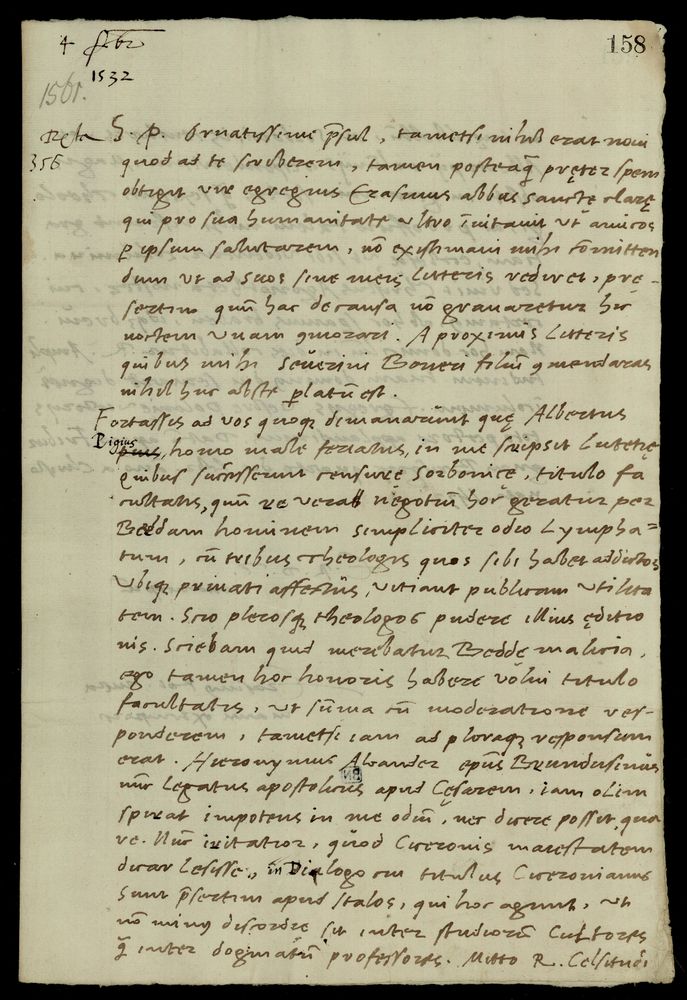 4 febr
1532
158
1561.
356
S. P. Ornatissime p̄sul, tametsi nihil erat novi
quod ad te scriberem, tamen posteaq̄ pręter spem
obtigit vir egregius Erasmus abbas sanctę clarę
qui pro sua humanitate ultro invitavit ut amicos
p ipsum salutarem, nō existimavi mihi cōmitten
dum ut ad suos sine meis litteris rediret, pre-
sertim quum hac de causa nō gravaretur hic
noctem unam cōmorari. A proximis litteris
quibus mihi Severini Boneri filiū cōmendaras
nihil huc abste platū est.
Fortassis ad vos quoq; dimanarunt quę Albertus
Pigius
pius, homo male feriatus, in me scripsit Lutetię
Quibus successerunt censurę Sorbonicę, titulo fa
cultatis, quum re vera negotiū hoc geratur per
Beddam hominem simpliciter odio lympha=
tum, cū tribus theologis quos sibi habet addictos
Ubiq; privati affectus, vitiant publicam utilita
tem. Scio plerosq; theologos pudere illius ęditio
nis. Sciebam quid merebatur Beddę malicia,
ego tamen hoc honoris habere volui titulo
facultatis, ut sūma cū moderatione res-
ponderem, tametsi iam ad pleraq; responsum
erat. Hieronymus Aleander ep̄us Brundusinus
nūc Legatus apostolicus apud Cęsarem, iam olim
spirat impotens in me odiū, nec dicere possit qua
re. Nūc iritatior, quod Ciceronis maiestatem
dicar lesisse, in Dialogo cui titulus Ciceronianus
Sunt p̄sertim apud Italos, qui hoc agunt, ut
nō minus discordię sit inter studiorū Cultores
q̄ inter dogmatū professores. Mitto R. Celsitudi